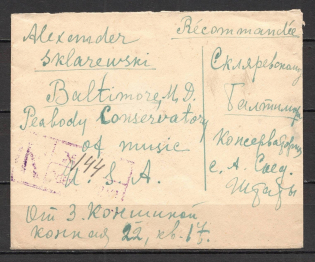 Alexander
Recommandée
Sklarewski
Baltimore, M. D.
Peabody Conservatory
of music
U. S. A.
144
Скляревскому
Балтимор
Консерватория
С. А. Соед.
Штаты
От З. Коншиной
Конная 22, кв. 17